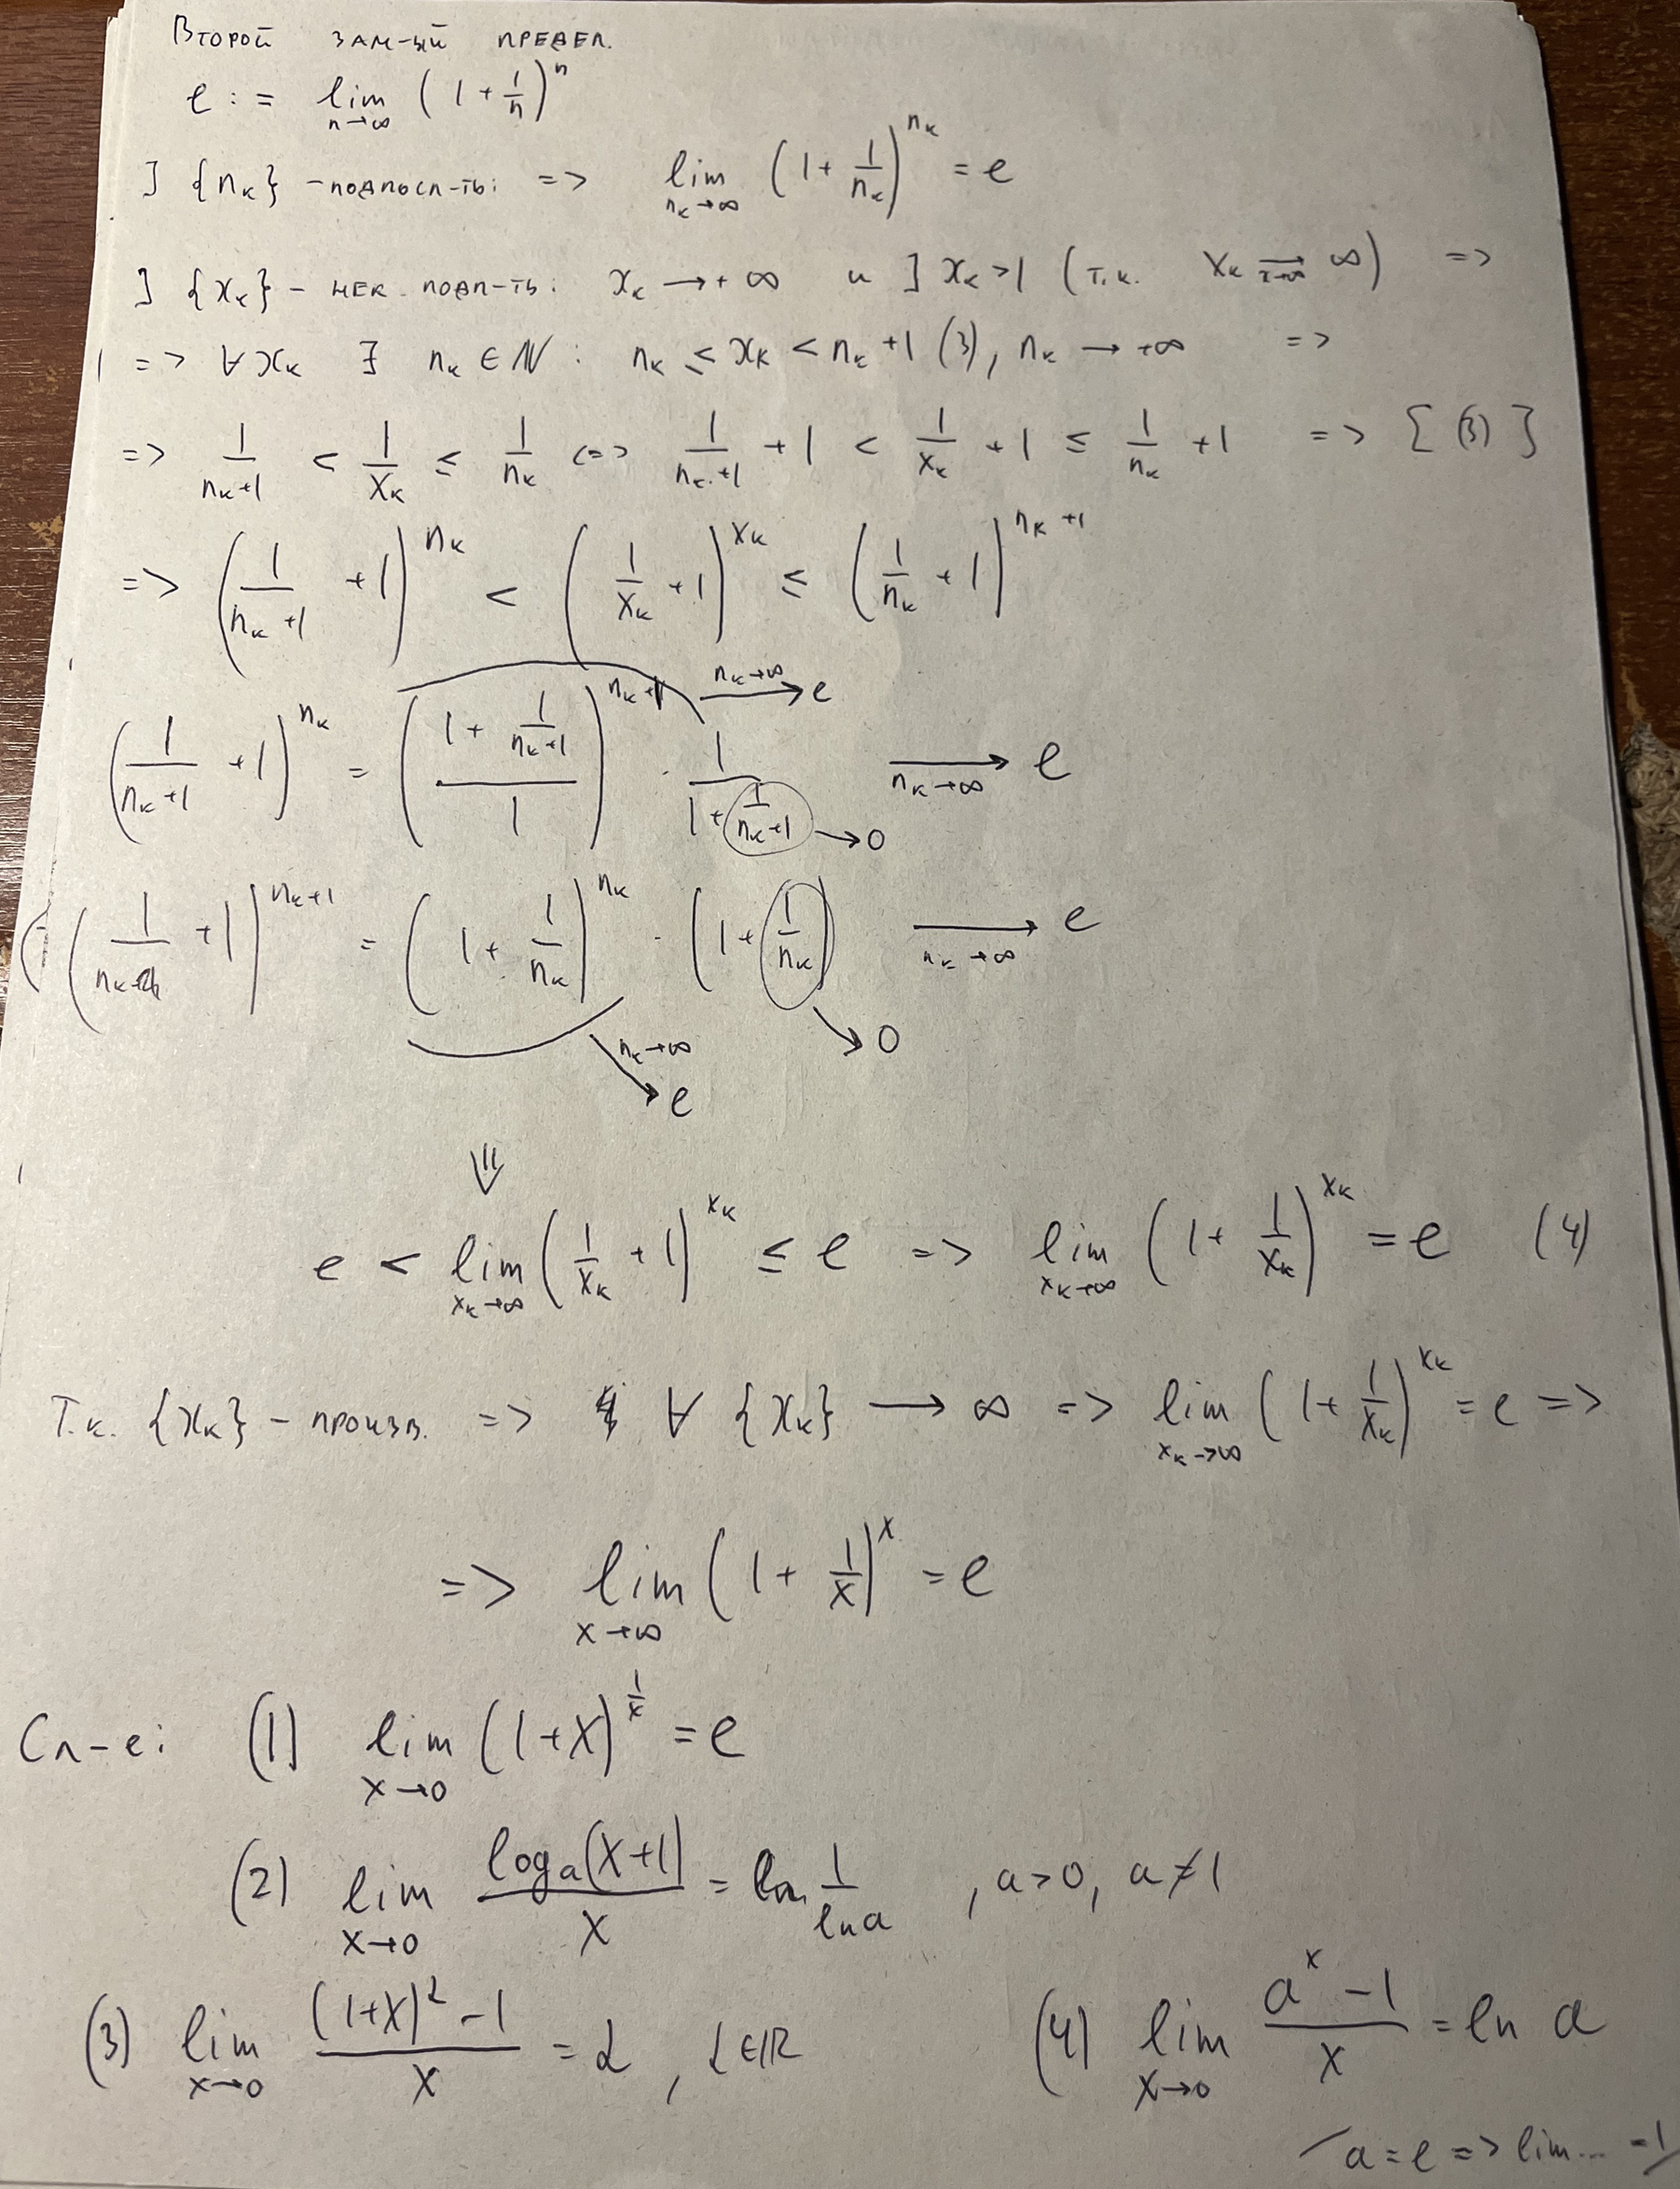 Второй зам-ый предел.
e := lim_{n→∞} (1 + 1/n)^n
] {n_k} - подпосл-ть: => lim_{n_k→∞} (1 + 1/n_k)^{n_k} = e
] {x_k} - нек. подп-ть: x_k → +∞ и ] x_k > 1 (т.к. x_k → ∞) =>
=> ∀ x_k ∃ n_k ∈ N : n_k ≤ x_k < n_k + 1 (3), n_k → +∞ =>
=> 1/(n_k+1) < 1/x_k ≤ 1/n_k <=> 1/(n_k+1) + 1 < 1/x_k + 1 ≤ 1/n_k + 1 => [(3)]
=> (1/(n_k+1) + 1)^{n_k} < (1/x_k + 1)^{x_k} ≤ (1/n_k + 1)^{n_k+1}
n_k→∞ → e
(1/(n_k+1) + 1)^{n_k} = ((1 + 1/(n_k+1))/1)^{n_k+1} · 1/(1 + 1/(n_k+1)) →_{n_k→∞} e
→ 0
(1/n_k + 1)^{n_k+1} = (1 + 1/n_k)^{n_k} · (1 + 1/n_k) →_{n_k→∞} e
n_k→∞ → e → 0
⇓
e < lim_{x_k→∞} (1/x_k + 1)^{x_k} ≤ e => lim_{x_k→∞} (1 + 1/x_k)^{x_k} = e (4)
Т.к. {x_k} - произв. => ∀ {x_k} → ∞ => lim_{x_k→∞} (1 + 1/x_k)^{x_k} = e =>
=> lim_{x→∞} (1 + 1/x)^x = e
Сл-е: (1) lim_{x→0} (1+x)^{1/x} = e
(2) lim_{x→0} log_a(x+1)/x = 1/ln a , a>0, a≠1
(3) lim_{x→0} ((1+x)^α - 1)/x = α , α∈R (4) lim_{x→0} (a^x - 1)/x = ln a
a = e => lim ... = 1